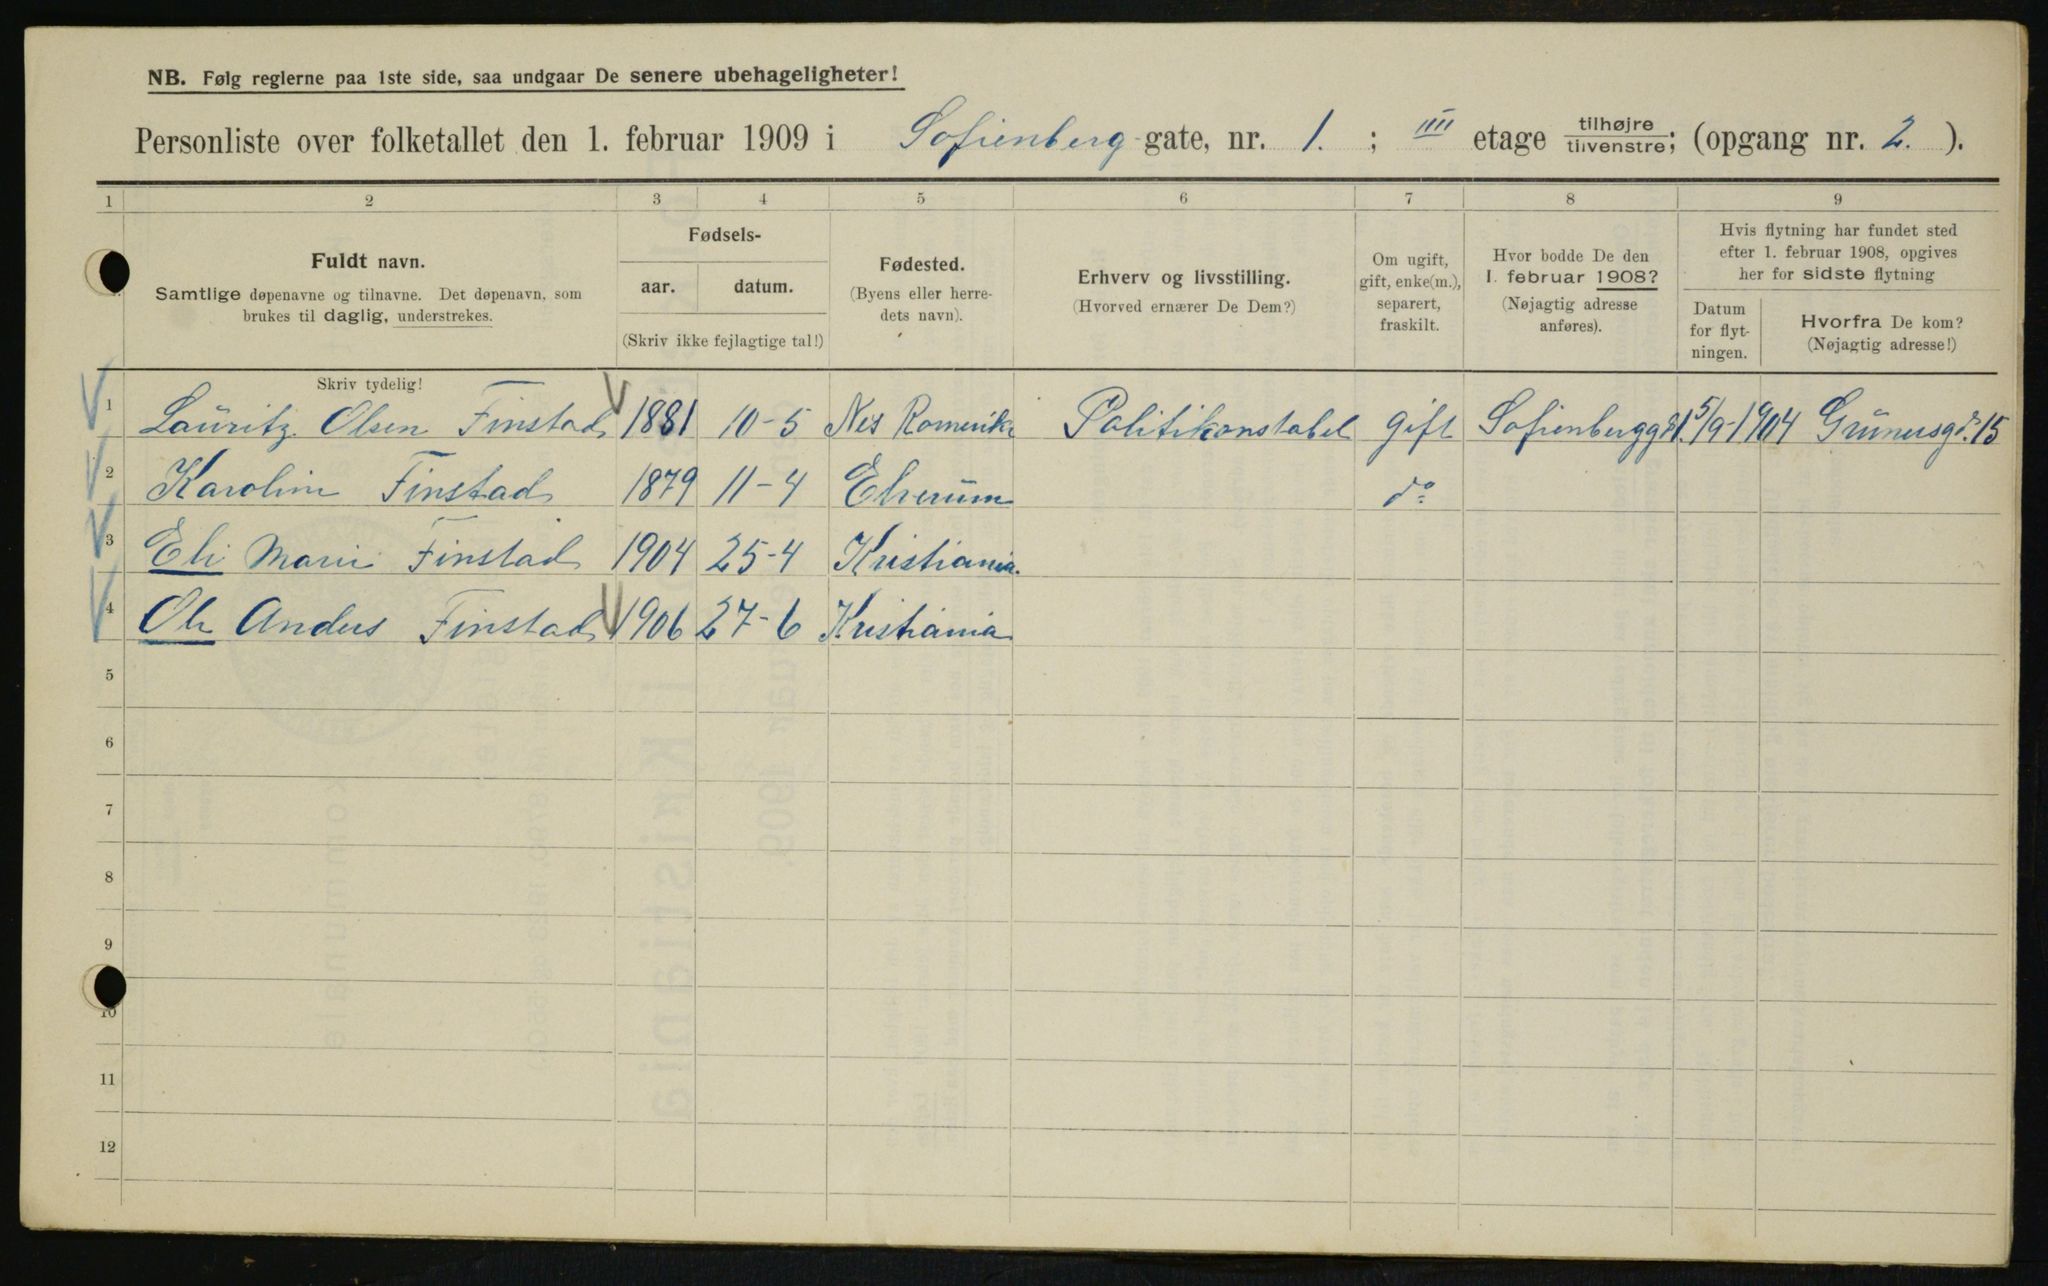 NB. Følg reglerne paa 1ste side, saa undgaar De senere ubehageligheter!
Personliste over folketallet den 1. februar 1909 i Sofienberg-gate, nr. 1. ; IIII etage tilhøjre/tilvenstre; (opgang nr. 2. ).
1 2 3 4 5 6 7 8 9
Fuldt navn.
Samtlige døpenavne og tilnavne. Det døpenavn, som
brukes til daglig, understrekes.
Fødsels-
aar. datum.
(Skriv ikke fejlagtige tal!)
Fødested.
(Byens eller herre-
dets navn).
Erhverv og livsstilling.
(Hvorved ernærer De Dem?)
Om ugift,
gift, enke(m.),
separert,
fraskilt.
Hvor bodde De den
1. februar 1908?
(Nøjagtig adresse
anføres).
Hvis flytning har fundet sted
efter 1. februar 1908, opgives
her for sidste flytning
Datum
for flyt-
ningen.
Hvorfra De kom?
(Nøjagtig adresse!)
Skriv tydelig!
1 Lauritz Olsen Finstad 1881 10-5 Nes Romerike Politikonstabel gift Sofienberggd 1. 5/9-1904 Grünersgd. 15
2 Karoline Finstad 1879 11-4 Elverum do
3 Eli Marie Finstad 1904 25-4 Kristiania.
4 Ole Anders Finstad 1906 27-6 Kristiania
5
6
7
8
9
10
11
12